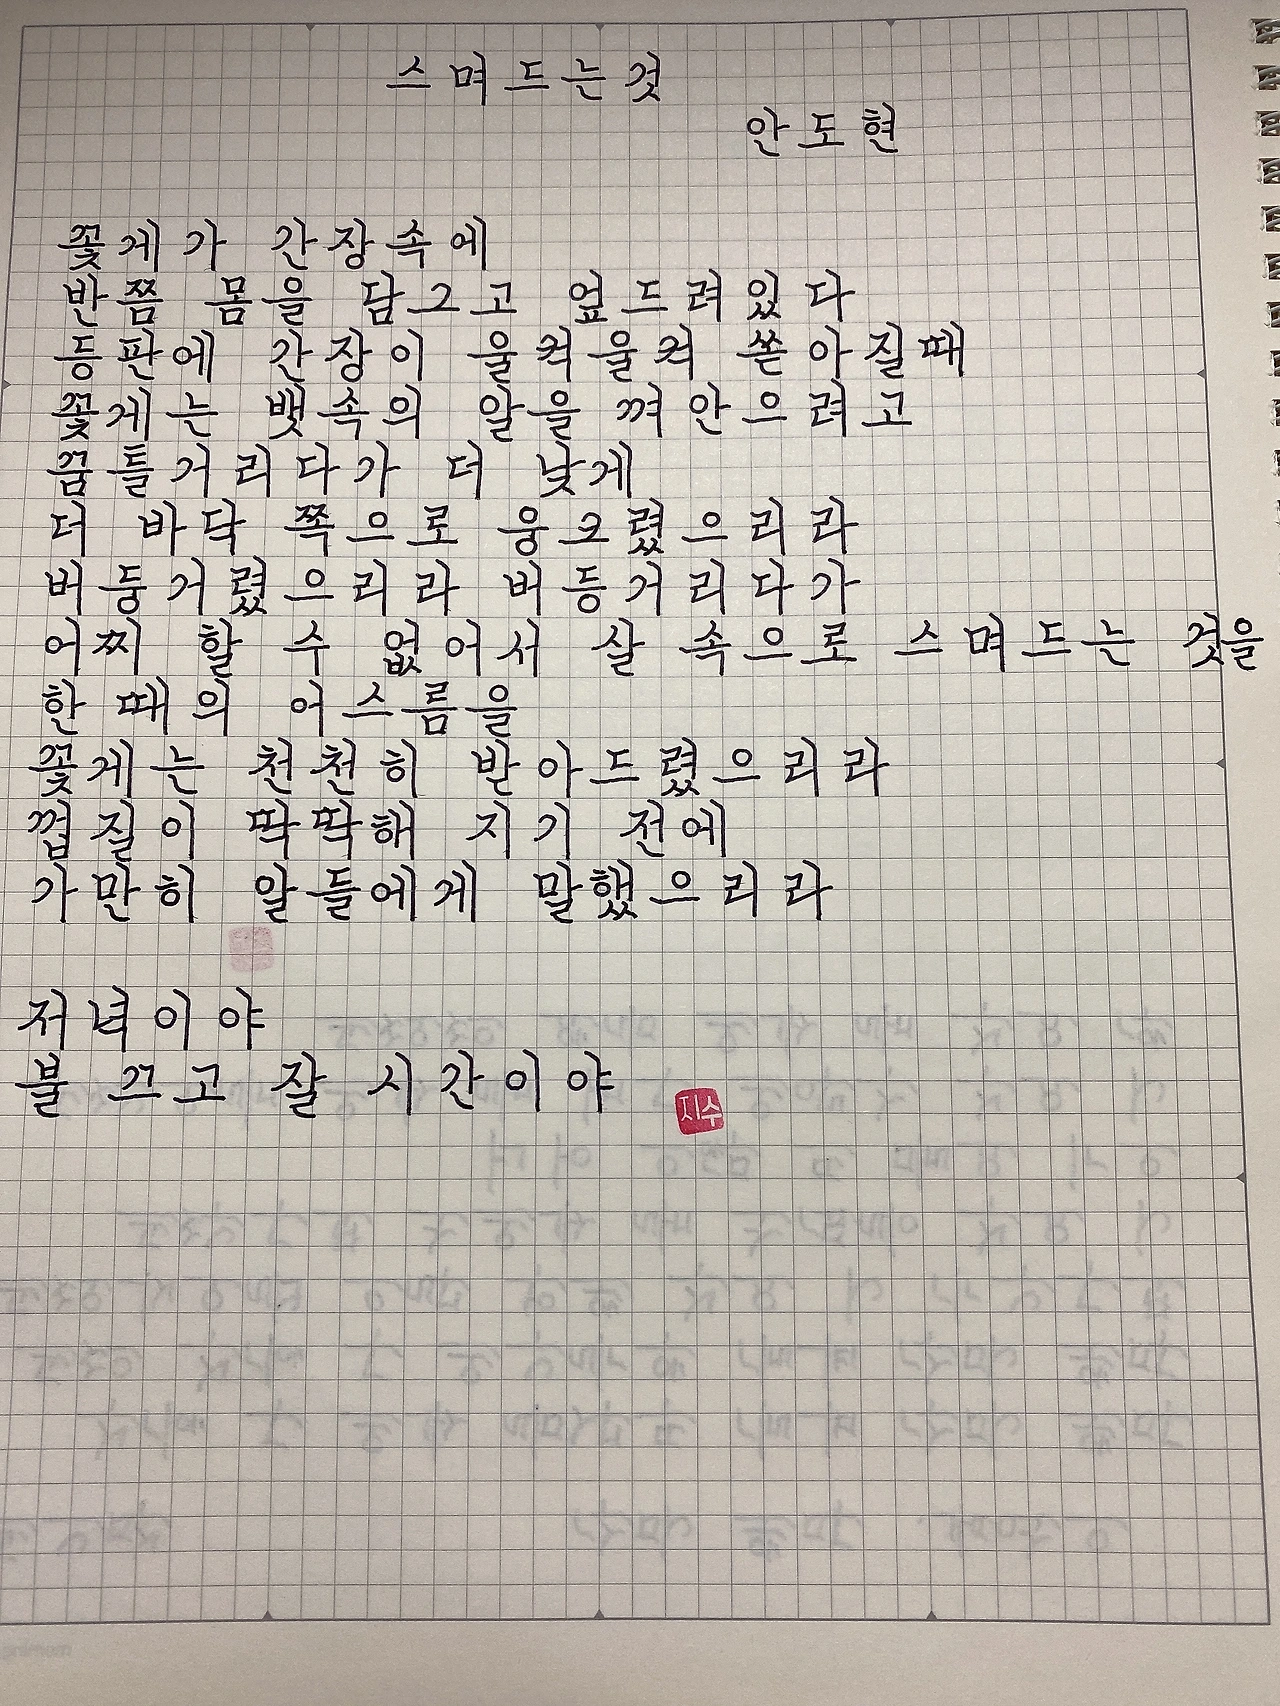 스며드는것
안도현
꽃게가 간장속에
반쯤 몸을 담그고 엎드려있다
등판에 간장이 울컥울컥 쏟아질때
꽃게는 뱃속의 알을 껴안으려고
꿈틀거리다가 더 낮게
더 바닥 쪽으로 웅크렸으리라
버둥거렸으리라 버둥거리다가
어찌 할 수 없어서 살 속으로 스며드는 것을
한 때의 어스름을
꽃게는 천천히 받아드렸으리라
껍질이 딱딱해 지기 전에
가만히 알들에게 말했으리라
저녁이야
불 끄고 잘 시간이야
지수